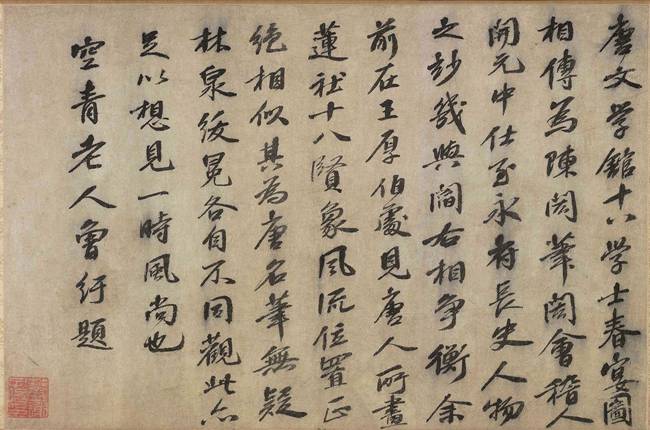 唐文学館十八学士春宴図
相傳為陳閎筆閎會稽人
開元中仕至永府長史人物
之妙幾與閻右相争衡余
前在王厚伯處見唐人所畫
蓮社十八賢象風流位置正
絶相似其為唐名筆無疑
林泉綬冕各自不同觀此亦
足以想見一時風尚也
空青老人曾紆題